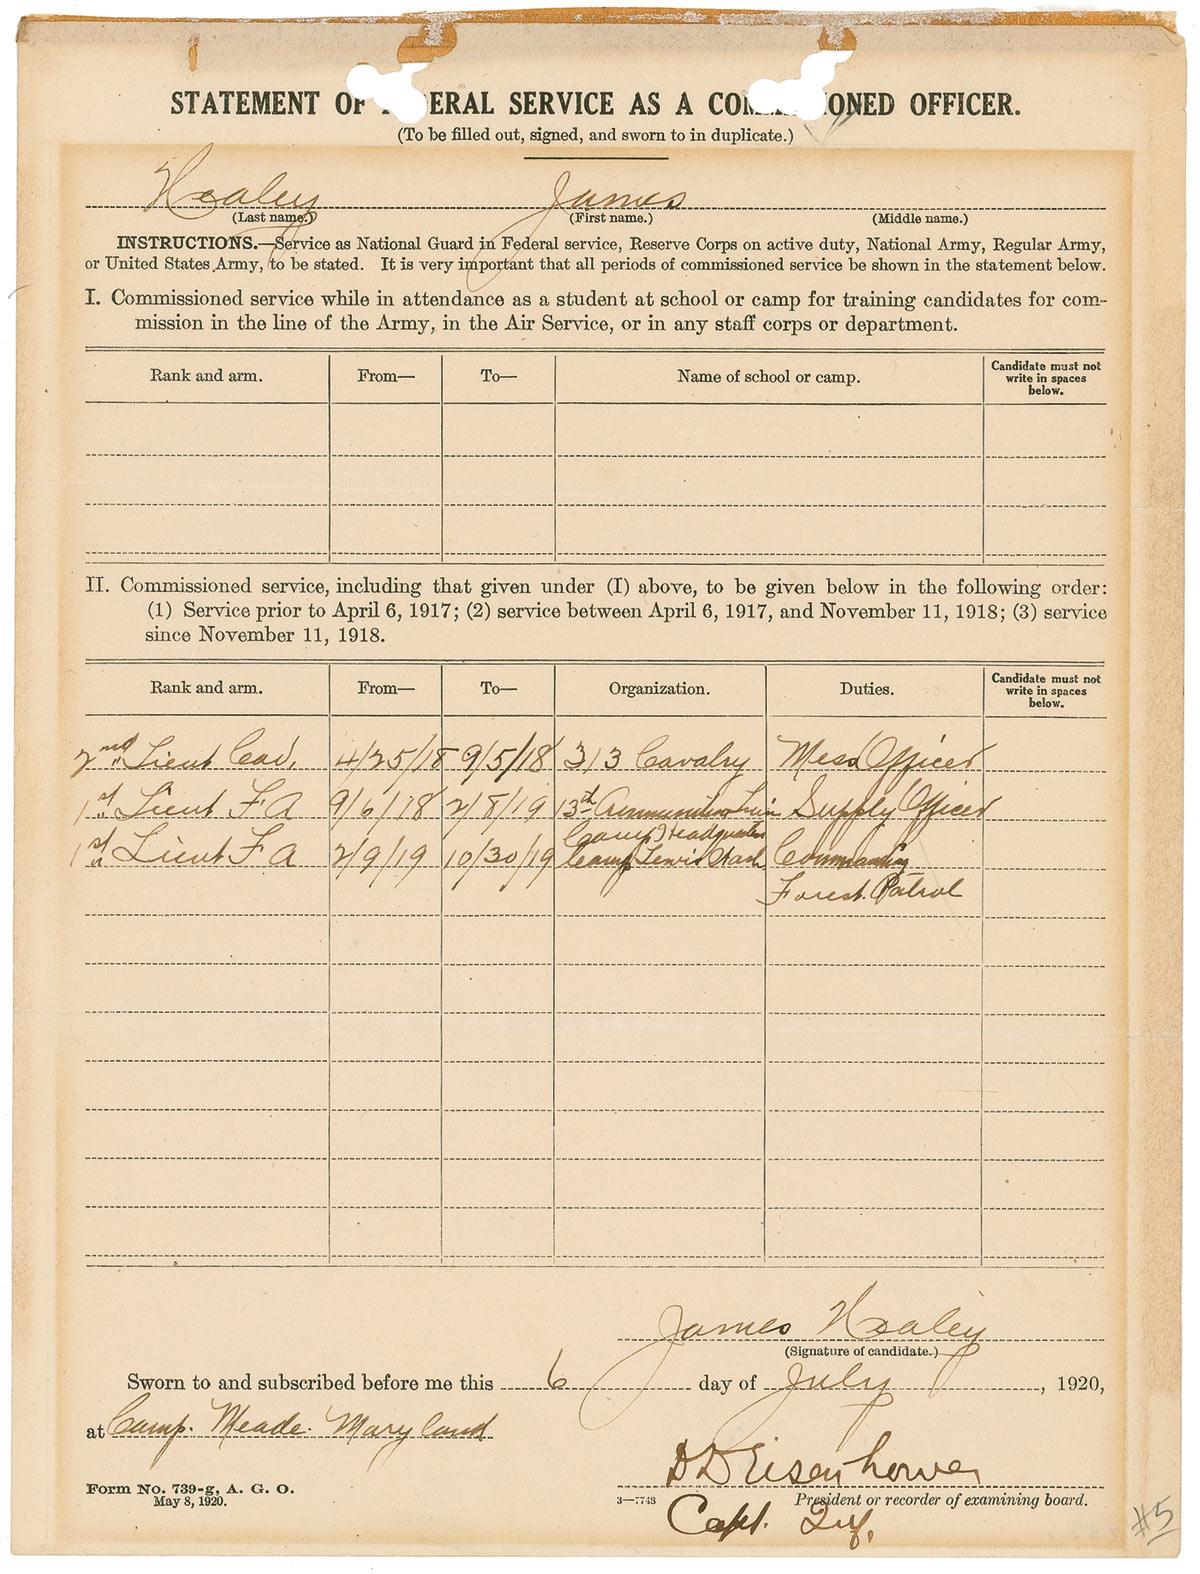 STATEMENT OF FEDERAL SERVICE AS A COMMISSIONED OFFICER.
(To be filled out, signed, and sworn to in duplicate.)
Healey James
(Last name.) (First name.) (Middle name.)
INSTRUCTIONS.—Service as National Guard in Federal service, Reserve Corps on active duty, National Army, Regular Army,
or United States Army, to be stated. It is very important that all periods of commissioned service be shown in the statement below.
I. Commissioned service while in attendance as a student at school or camp for training candidates for com-
mission in the line of the Army, in the Air Service, or in any staff corps or department.
Rank and arm. From— To— Name of school or camp. Candidate must not
write in spaces
below.
II. Commissioned service, including that given under (I) above, to be given below in the following order:
(1) Service prior to April 6, 1917; (2) service between April 6, 1917, and November 11, 1918; (3) service
since November 11, 1918.
Rank and arm. From— To— Organization. Duties. Candidate must not
write in spaces
below.
2nd Lieut Cav. 4/25/18 9/5/18 313 Cavalry Mess Officer
1st Lieut F A 9/6/18 2/8/19 13th Ammunition Train Supply Officer
Camp Headquarters
1st Lieut F A 2/9/19 10/30/19 Camp Lewis Wash Commanding
Forest Patrol
James Healey
(Signature of candidate.)
Sworn to and subscribed before me this 6 day of July, 1920,
at Camp. Meade. Maryland
D D Eisenhower
Form No. 739-g, A. G. O.
May 8, 1920.
3—7748 President or recorder of examining board.
Capt. Inf.
#5